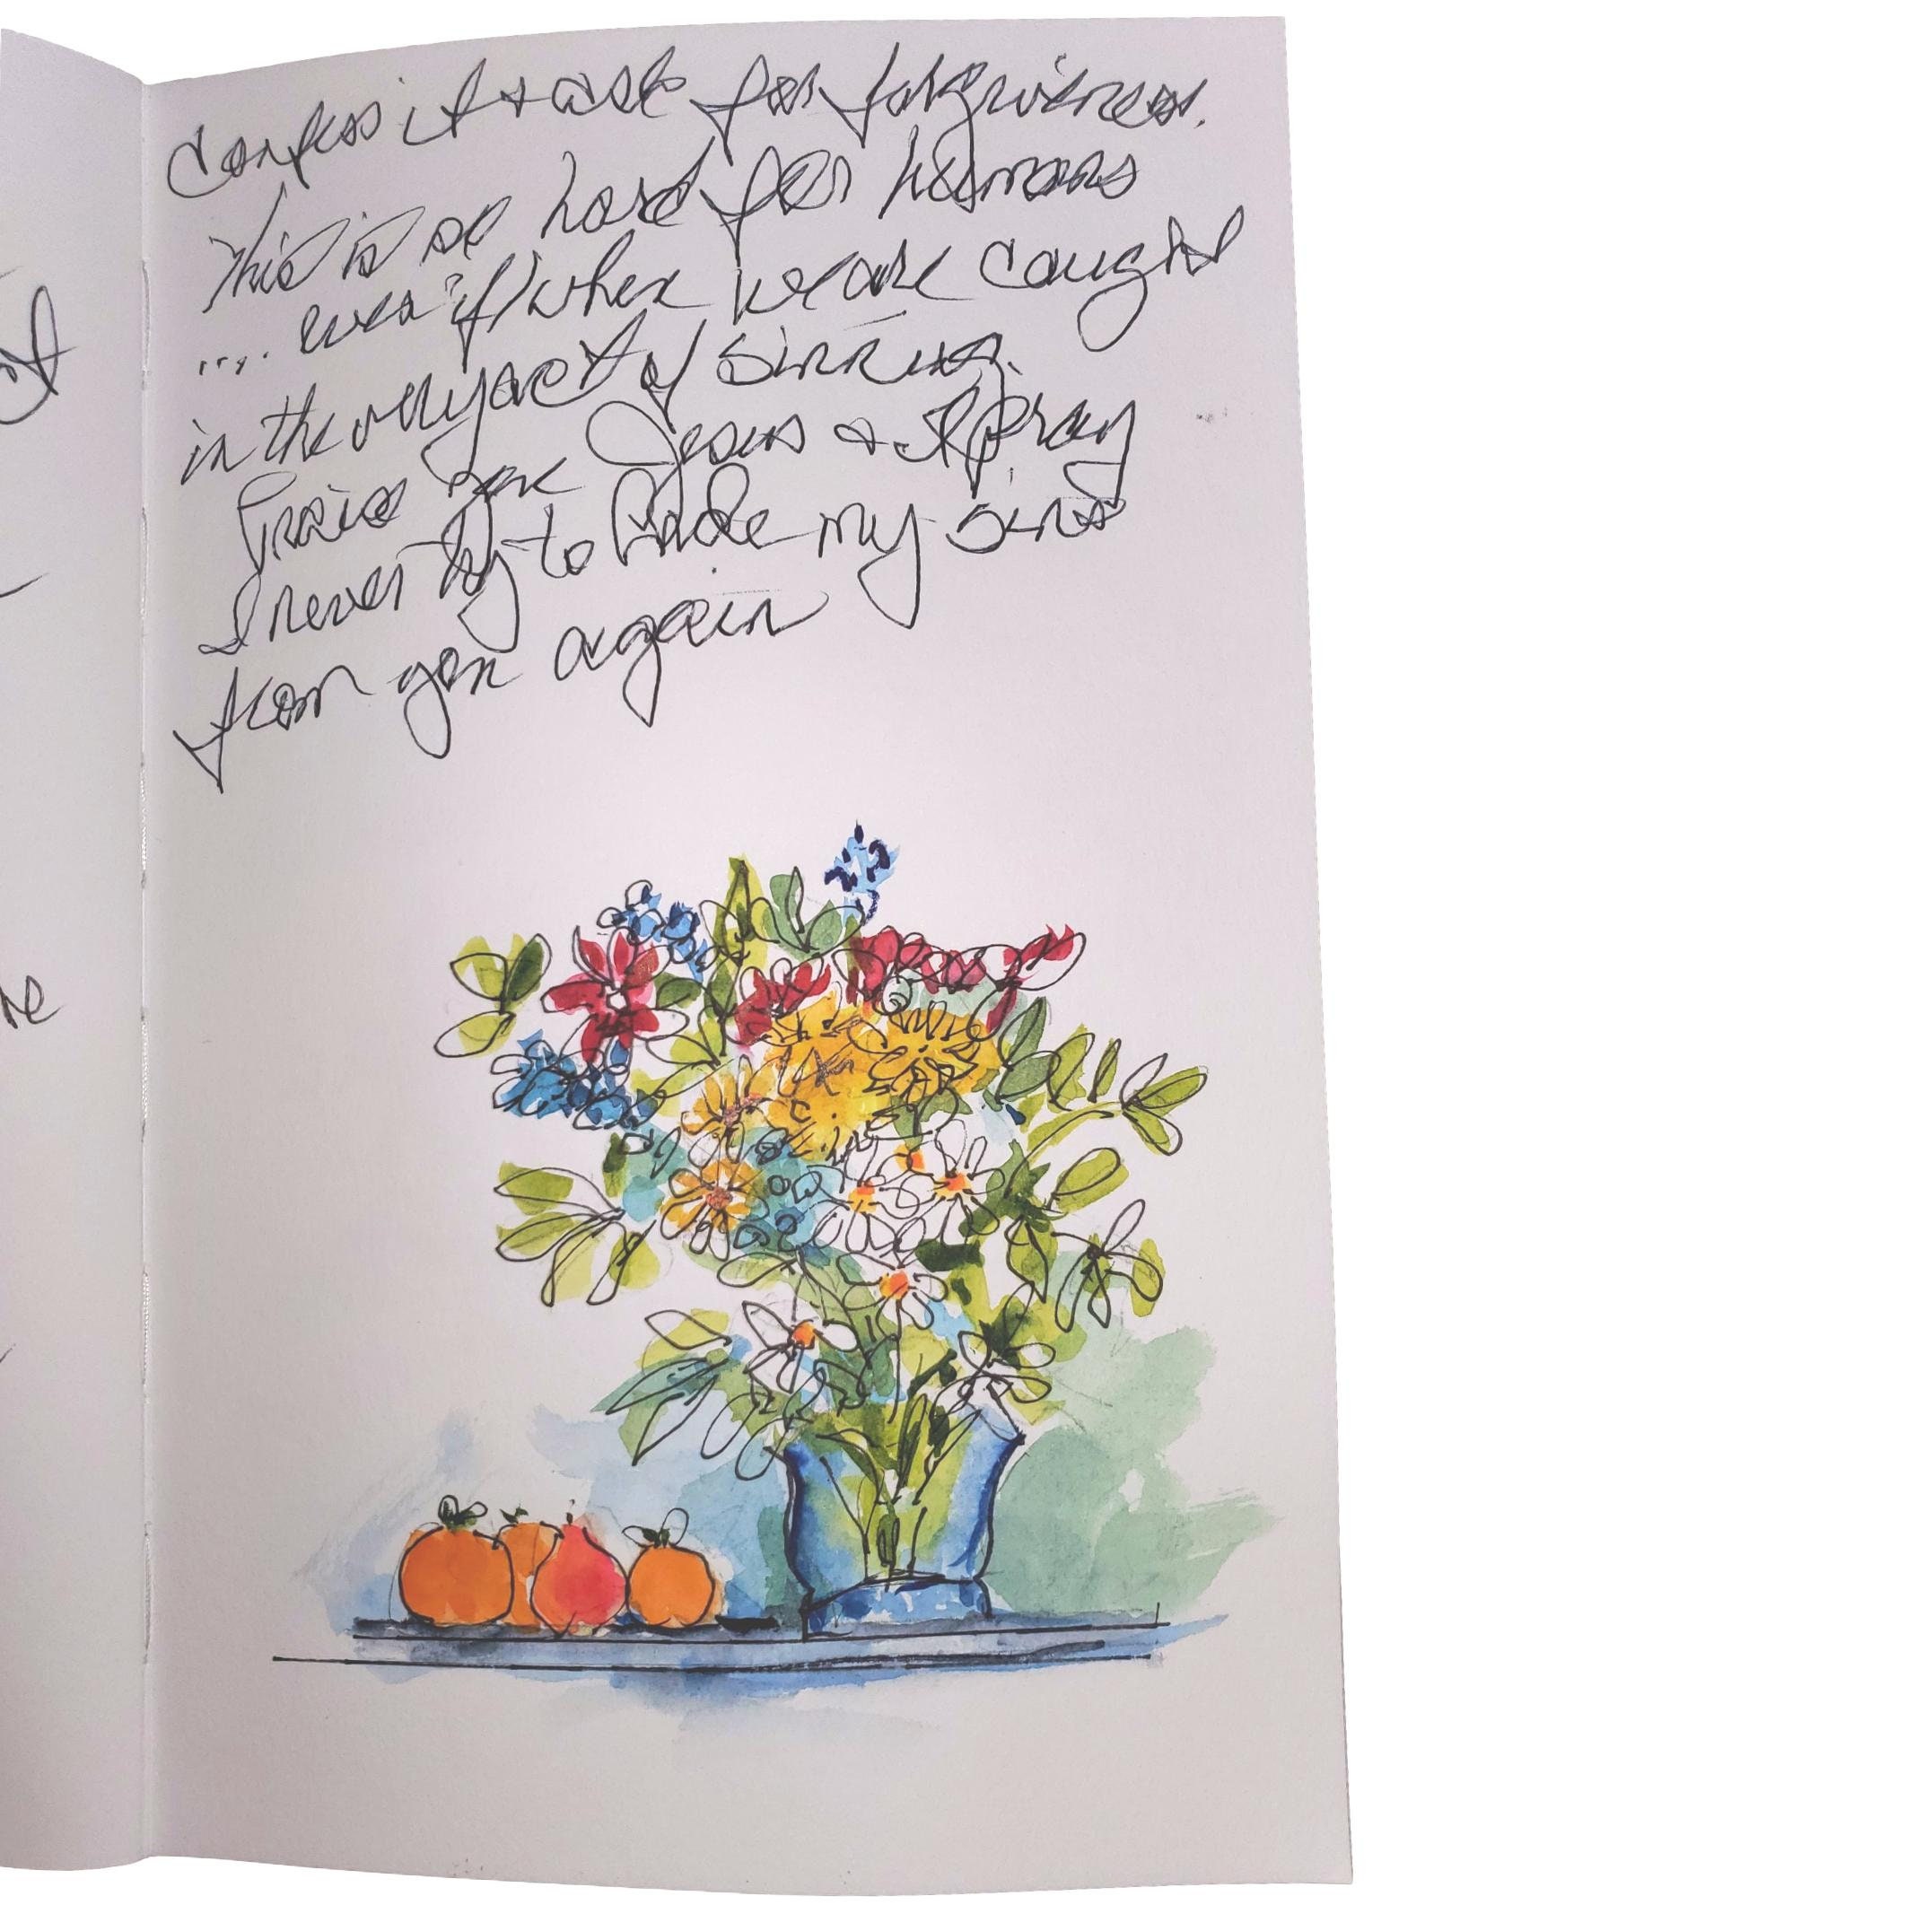 Confess it + ask for forgiveness.
This is so hard for humans
.... even if/when we are caught
in the very act of sinning.
Praise you Jesus & I pray
I never try to hide my sins
from you again